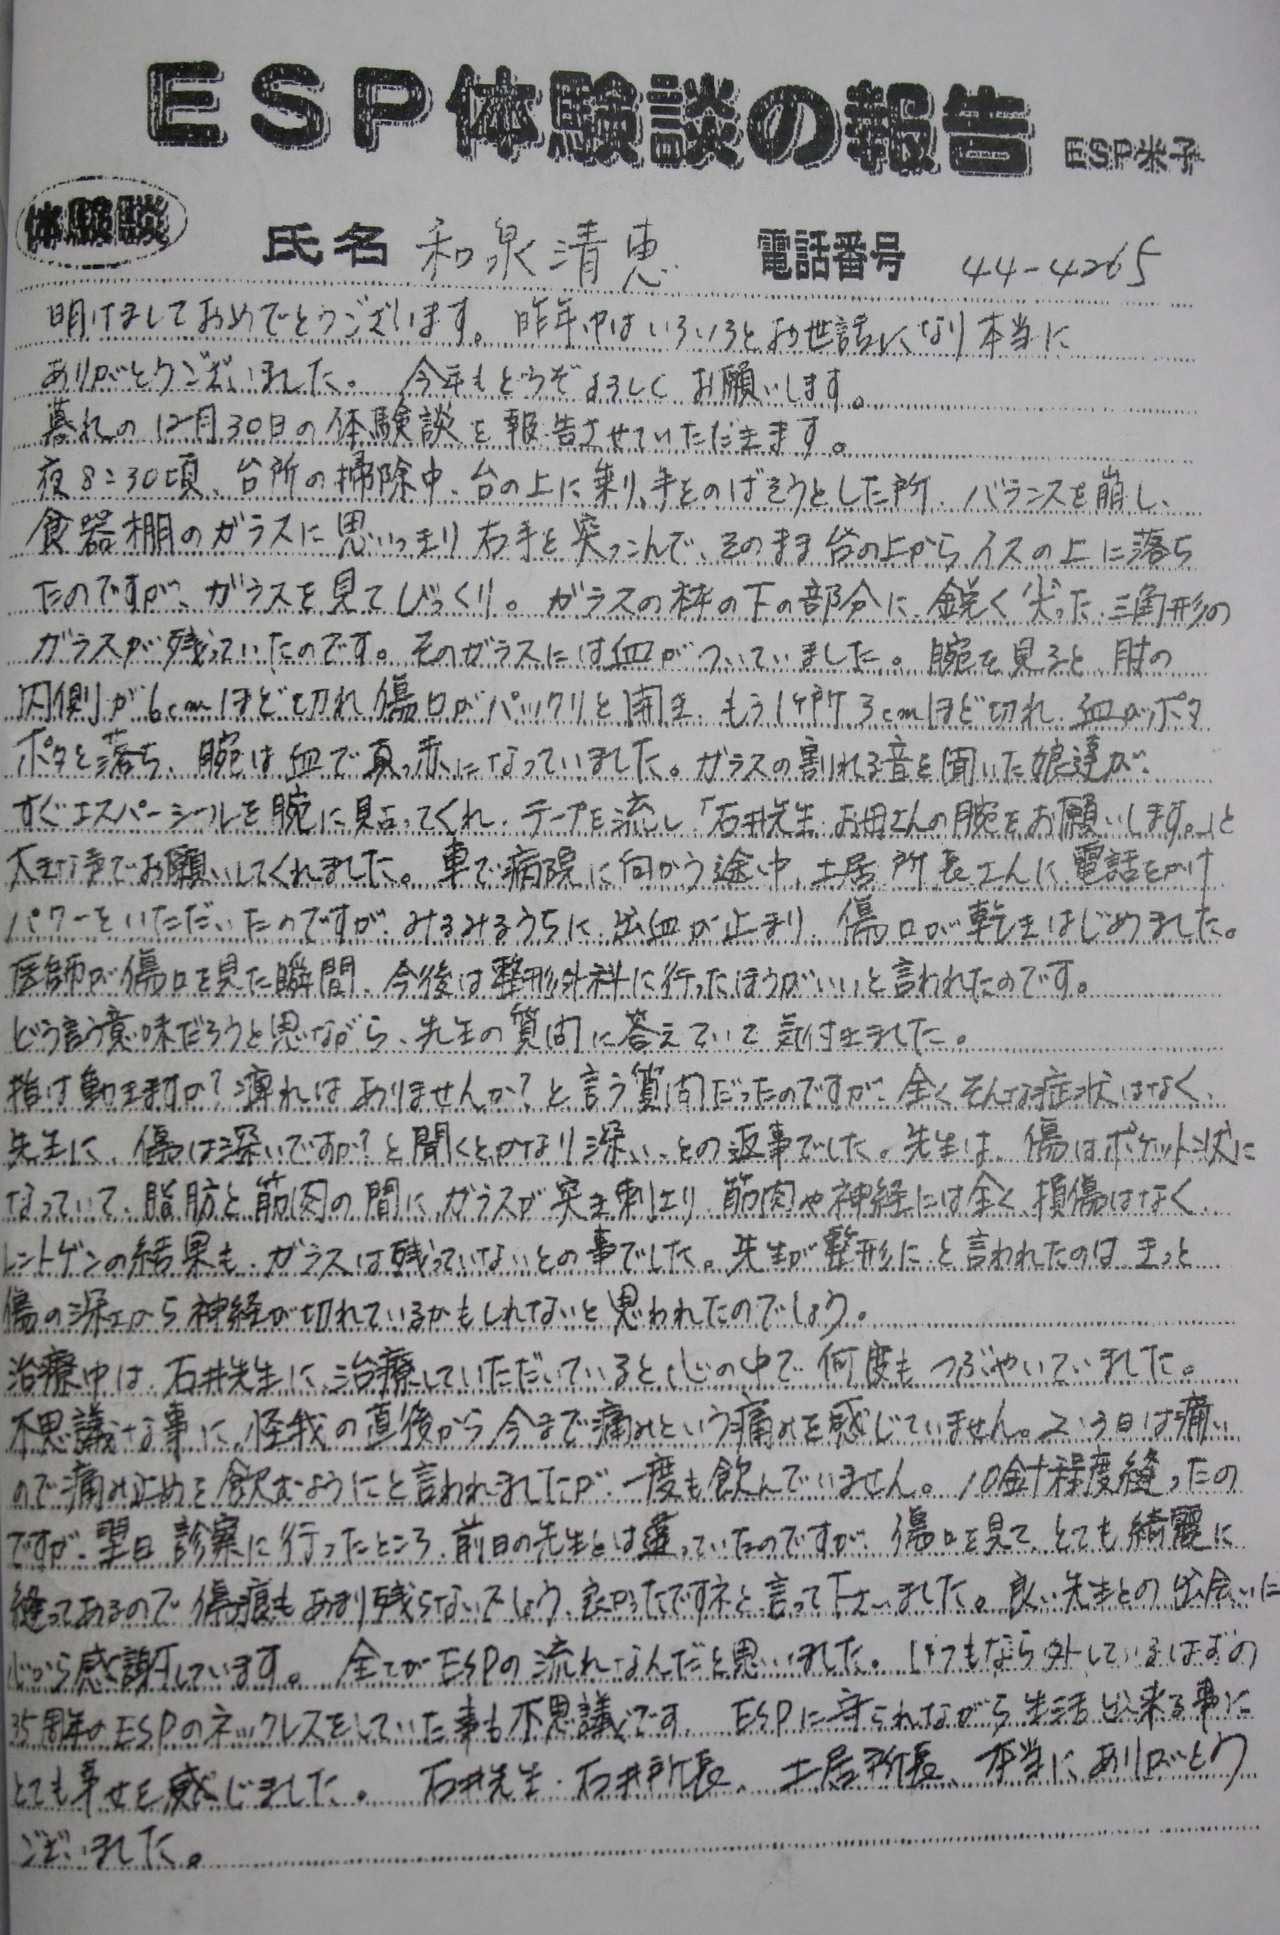 ESP体験談の報告 ESP米子
体験談 氏名 和泉清恵 電話番号 44-4265
明けましておめでとうございます。昨年中はいろいろとお世話になり本当に
ありがとうございました。 今年もどうぞよろしくお願いします。
暮れの12月30日の体験談を報告させていただきます。
夜8:30頃、台所の掃除中、台の上に乗り、手をのばそうとした所、バランスを崩し、
食器棚のガラスに思いっきり右手を突っこんで、そのまま台の上からイスの上に落ち
たのですが、ガラスを見てびっくり。ガラスの枠の下の部分に鋭く尖った三角形の
ガラスが残っていたのです。そのガラスには血がついていました。腕を見ると、肘の
内側が6cmほど切れ傷口がパックリと開き、もう1ヶ所3cmほど切れ、血がポタ
ポタと落ち、腕は血で真っ赤になっていました。ガラスの割れる音を聞いた娘達が、
すぐエスパーシールを腕に貼ってくれ、テープを流し「石井先生、お母さんの腕をお願いします。」と
大きな声でお願いしてくれました。車で病院に向かう途中、土居所長さんに電話をかけ
パワーをいただいたのですが、みるみるうちに、出血が止まり、傷口が乾きはじめました。
医師が傷口を見た瞬間、今後は整形外科に行ったほうがいいと言われたのです。
どう言う意味だろうと思いながら、先生の質問に答えていて気付きました。
指は動きますか?痺れはありませんか?と言う質問だったのですが、全くそんな症状はなく、
先生に、傷は深いですか?と聞くとかなり深い、との返事でした。先生は、傷はポケット状に
なっていて、脂肪と筋肉の間に、ガラスが突き刺さり、筋肉や神経には全く損傷はなく、
レントゲンの結果も、ガラスは残っていないとの事でした。先生が整形にと言われたのは、きっと
傷の深さから神経が切れているかもしれないと思われたのでしょう。
治療中は、石井先生に、治療していただいていると心の中で、何度もつぶやいていました。
不思議な事に、怪我の直後から今まで痛みという痛みを感じていません。2、3日は痛い
ので痛み止めを飲むようにと言われましたが、一度も飲んでいません。10針程度縫ったの
ですが、翌日診察に行ったところ、前日の先生とは違っていたのですが、傷口を見て、とても綺麗に
縫ってあるので傷痕もあまり残らないでしょう、良かったですネと言って下さいました。良い先生との出会いに
心から感謝しています。 全てがESPの流れなんだと思いました。いつもなら外しているはずの
35周年のESPのネックレスをしていた事も不思議です。 ESPに守られながら生活出来る事に
とても幸せを感じました。 石井先生、石井所長、土居所長、本当にありがとう
ございました。